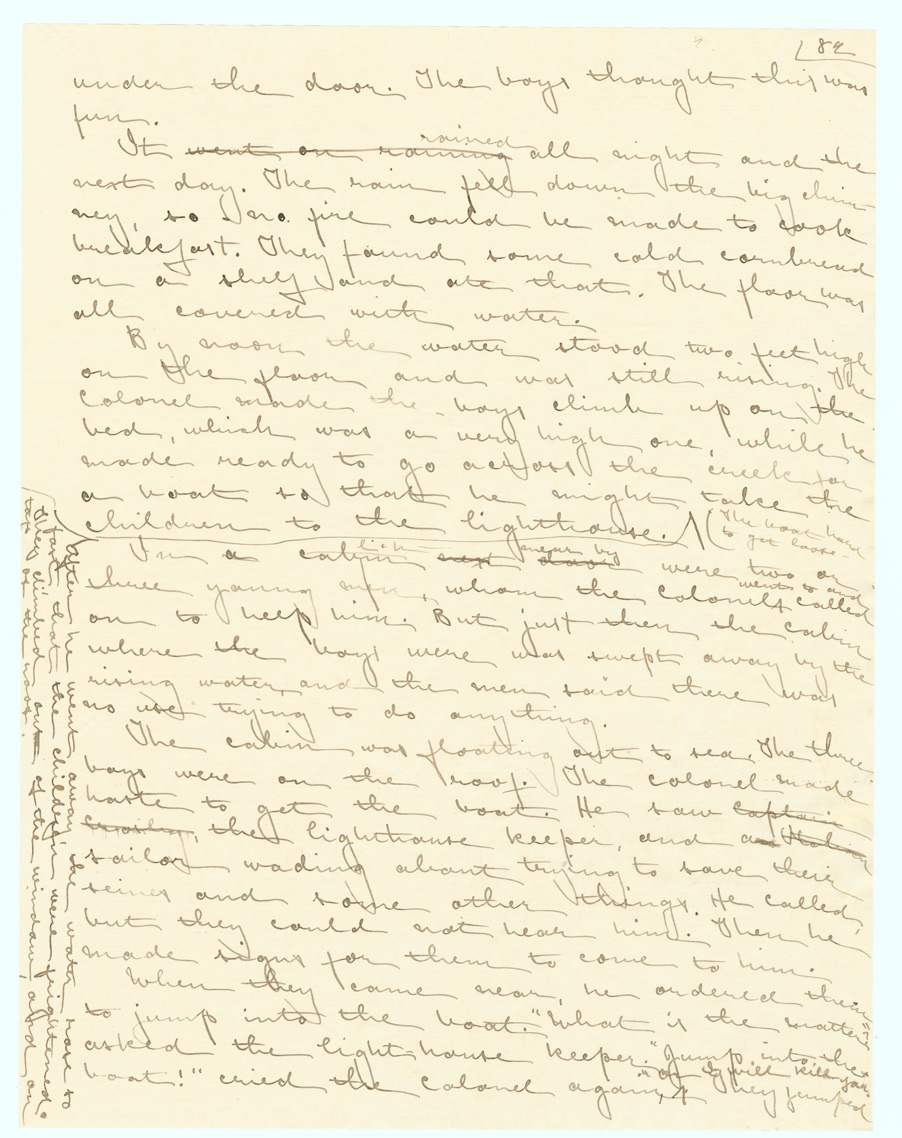 82
under the door. The boys thought this was
fun.
rained
It went on raining all night and the
next day. The rain fell down the big chim-
ney, so no fire could be made to cook
breakfast. They found some cold cornbread
on a shelf and ate that. The floor was
all covered with water.
By noon the water stood two feet high
on the floor and was still rising. The
Colonel made the boys climb up on the
bed, which was a very high one, while he
made ready to go across the creek for
a boat so that he might take the
children to the lighthouse.
The boat have
to get loose
near by
In a cabin next door were two or
went to and
three young men, whom the Colonel called
on to help him. But just then the cabin
where the boys were was swept away by the
rising water, and the men said there was
no use trying to do anything.
The cabin was floating out to sea. The three
boys were on the roof. The colonel made
haste to get the boat. He saw Captain
Crosby, the lighthouse keeper, and an Italian
sailor wading about trying to save their
seines and some other things. He called,
but they could not hear him. Then he
made signs for them to come to him.
When they came near, he ordered them
to jump into the boat. "What is the matter?"
asked the lighthouse keeper. "Jump into the
"or I will kill you."
boat!" cried the colonel again, They jumped
After he went away the water rose so
fast that the children were frightened.
They climbed out of the window and on
top of the roof.